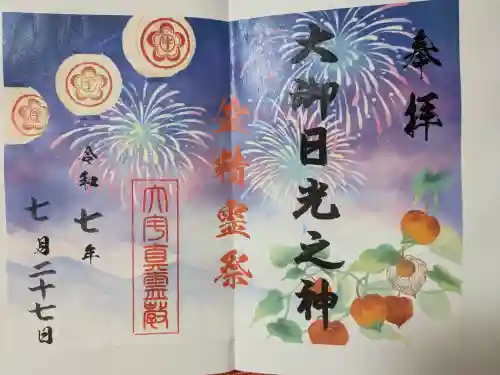 奉拝
大御日光之神
金精霊祭
大宇真霊教
令和七年
七月二十七日